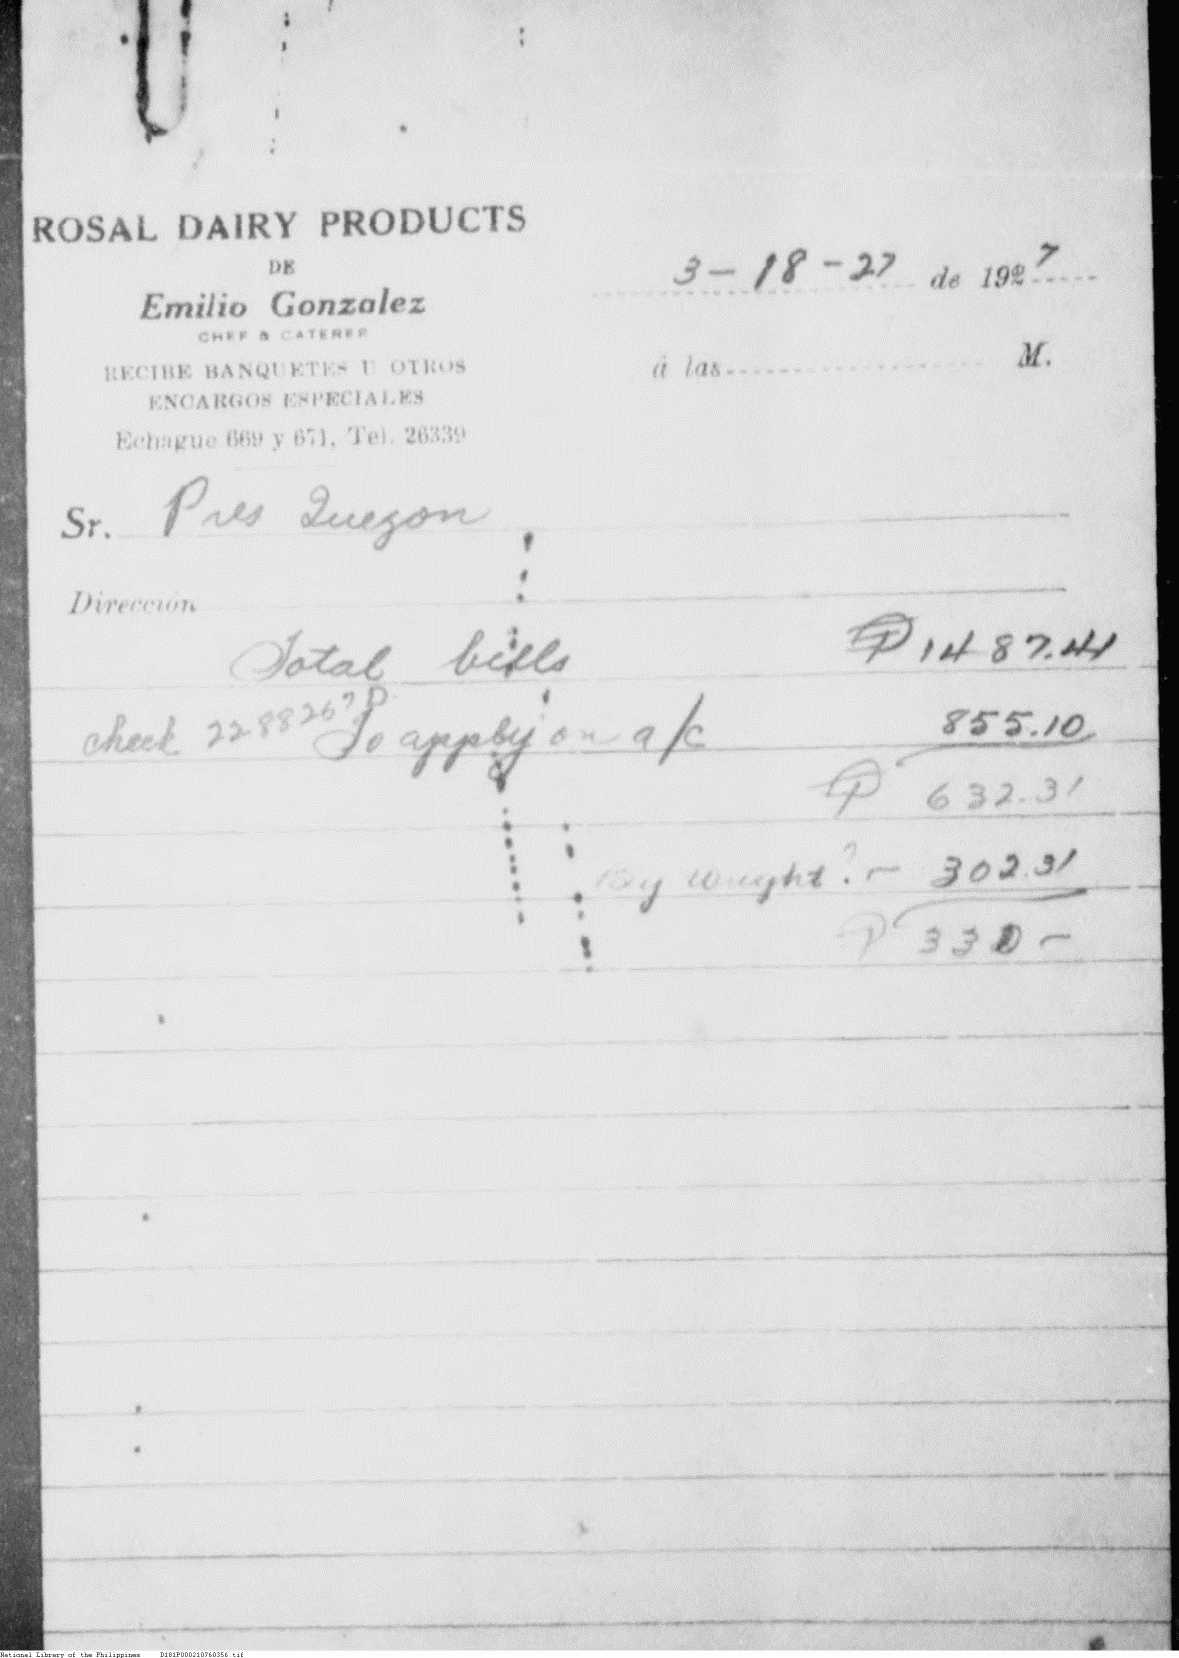 ROSAL DAIRY PRODUCTS
DE
Emilio Gonzalez
CHEF & CATERER
RECIBE BANQUETES U OTROS
ENCARGOS ESPECIALES
Echague 669 y 671, Tel. 26339
3-18-27 de 1927
á las M.
Sr. Pres Quezon
Dirección
Total bills ₱1487.41
check 2288267 P To apply on a/c 855.10
₱ 632.31
By Wright? - 302.31
₱ 330 -
National Library of the Philippines D181P000210760356.tif